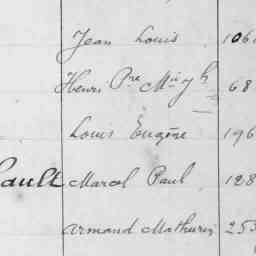 Jean Louis 106
Henri Pre 68
Louis Eugène 196
ault Marcel Paul 128
Armand Mathurin 253